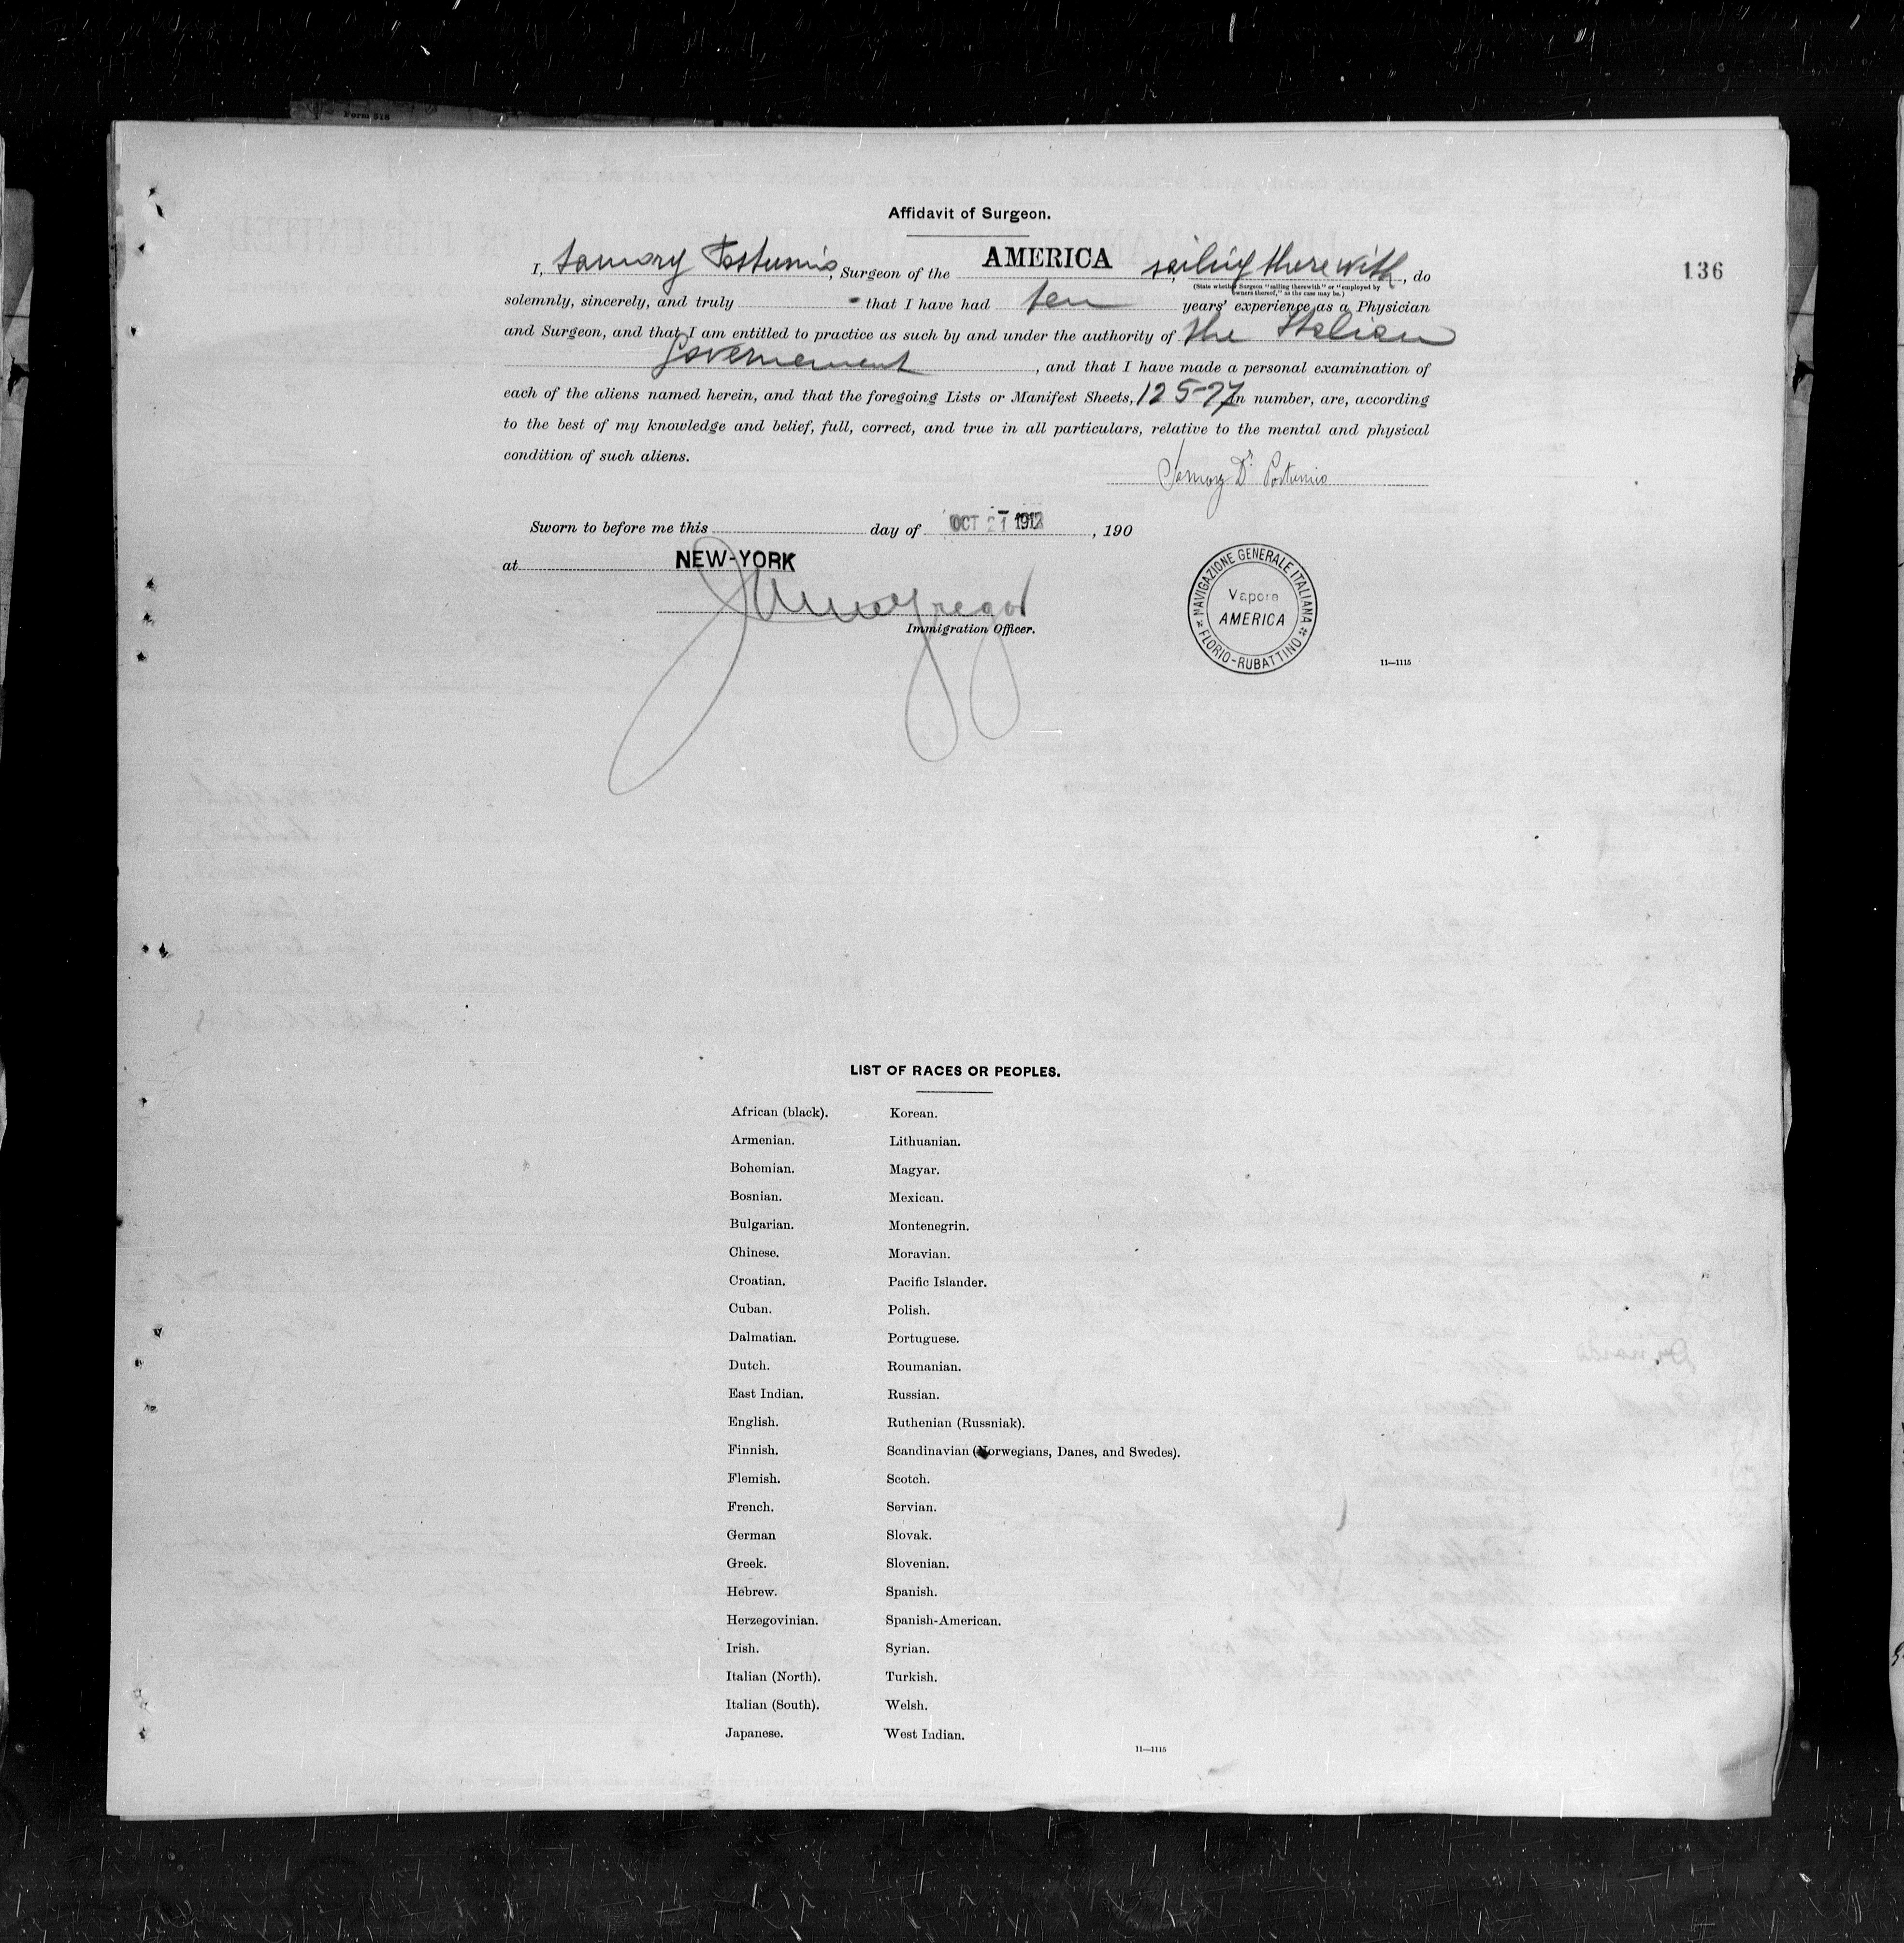 Form 518
Affidavit of Surgeon.
136
I, Samory Postumio, Surgeon of the AMERICA, sailing therewith, do
(State whether Surgeon "sailing therewith" or "employed by
owners thereof," as the case may be.)
solemnly, sincerely, and truly that I have had ten years' experience as a Physician
and Surgeon, and that I am entitled to practice as such by and under the authority of the Italian
Governement, and that I have made a personal examination of
each of the aliens named herein, and that the foregoing Lists or Manifest Sheets, in number, are, according
to the best of my knowledge and belief, full, correct, and true in all particulars, relative to the mental and physical
condition of such aliens.
Samory Dr. Postumio
Sworn to before me this day of OCT 21 1912, 190
at NEW-YORK
Immigration Officer.
NAVIGAZIONE GENERALE ITALIANA
Vapore
AMERICA
FLORIO-RUBATTINO
11—1115
LIST OF RACES OR PEOPLES.
African (black).
Armenian.
Bohemian.
Bosnian.
Bulgarian.
Chinese.
Croatian.
Cuban.
Dalmatian.
Dutch.
East Indian.
English.
Finnish.
Flemish.
French.
German
Greek.
Hebrew.
Herzegovinian.
Irish.
Italian (North).
Italian (South).
Japanese.
Korean.
Lithuanian.
Magyar.
Mexican.
Montenegrin.
Moravian.
Pacific Islander.
Polish.
Portuguese.
Roumanian.
Russian.
Ruthenian (Russniak).
Scandinavian (Norwegians, Danes, and Swedes).
Scotch.
Servian.
Slovak.
Slovenian.
Spanish.
Spanish-American.
Syrian.
Turkish.
Welsh.
West Indian.
11—1115